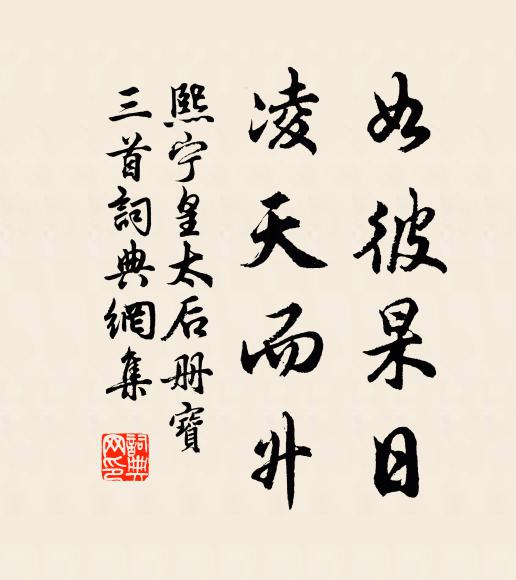 如彼杲日
凌天而升
熙宁皇太后册寶
三首詞典網集
詞典網印